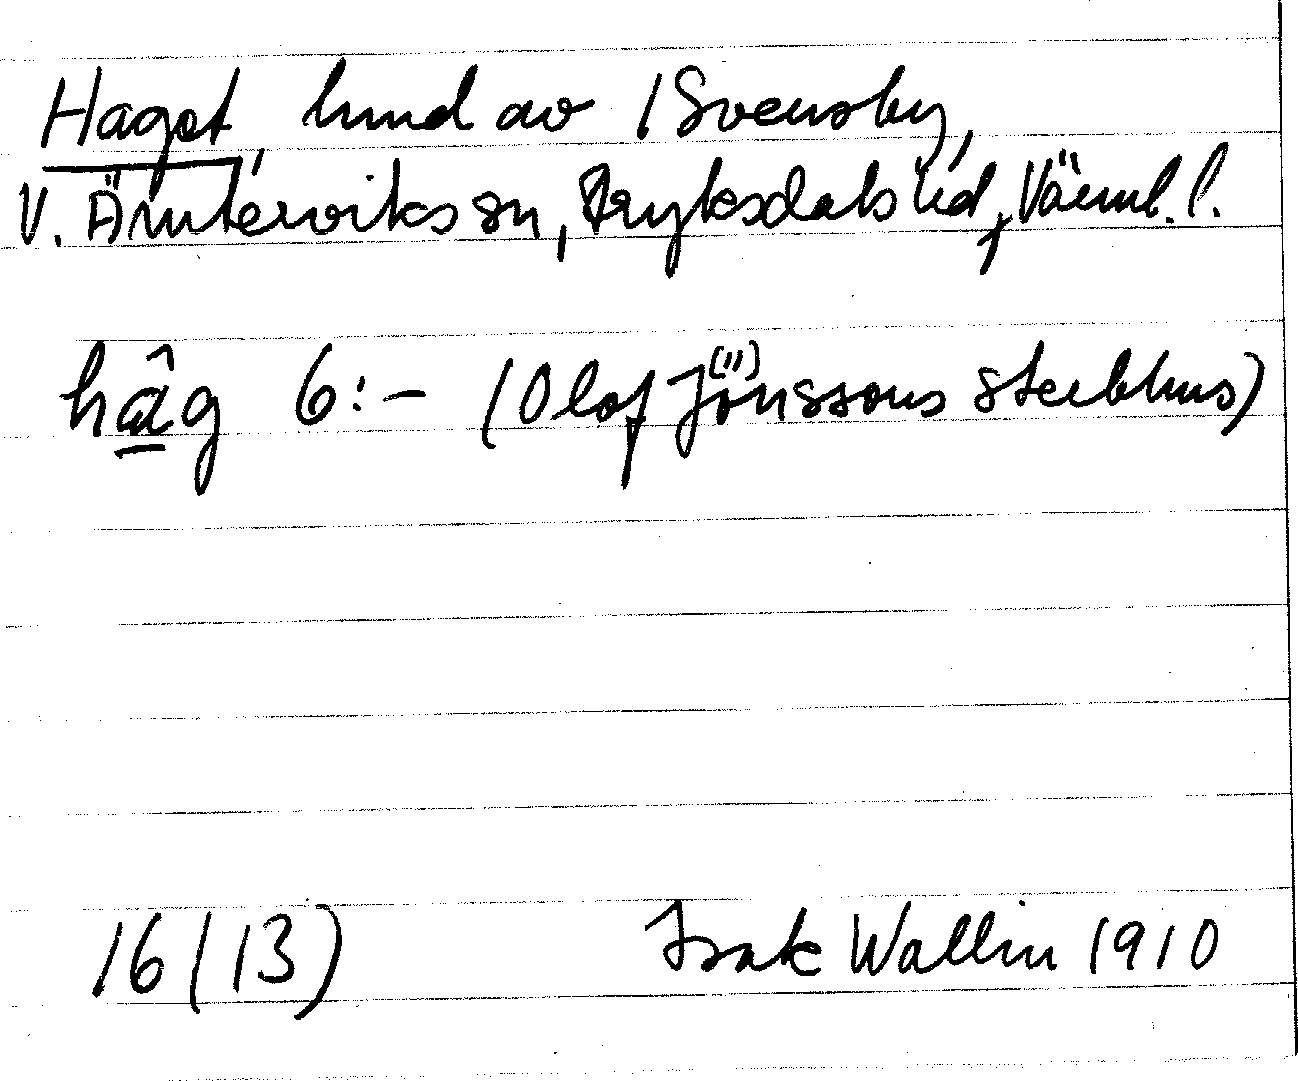 Haget, hmd av 1 Svensby,
V. Ämterviks sn, Fryksdals hd, Värml. l.
hâg 6:- (Olof Jönssons sterbhus)
16(13) Isak Wallin 1910